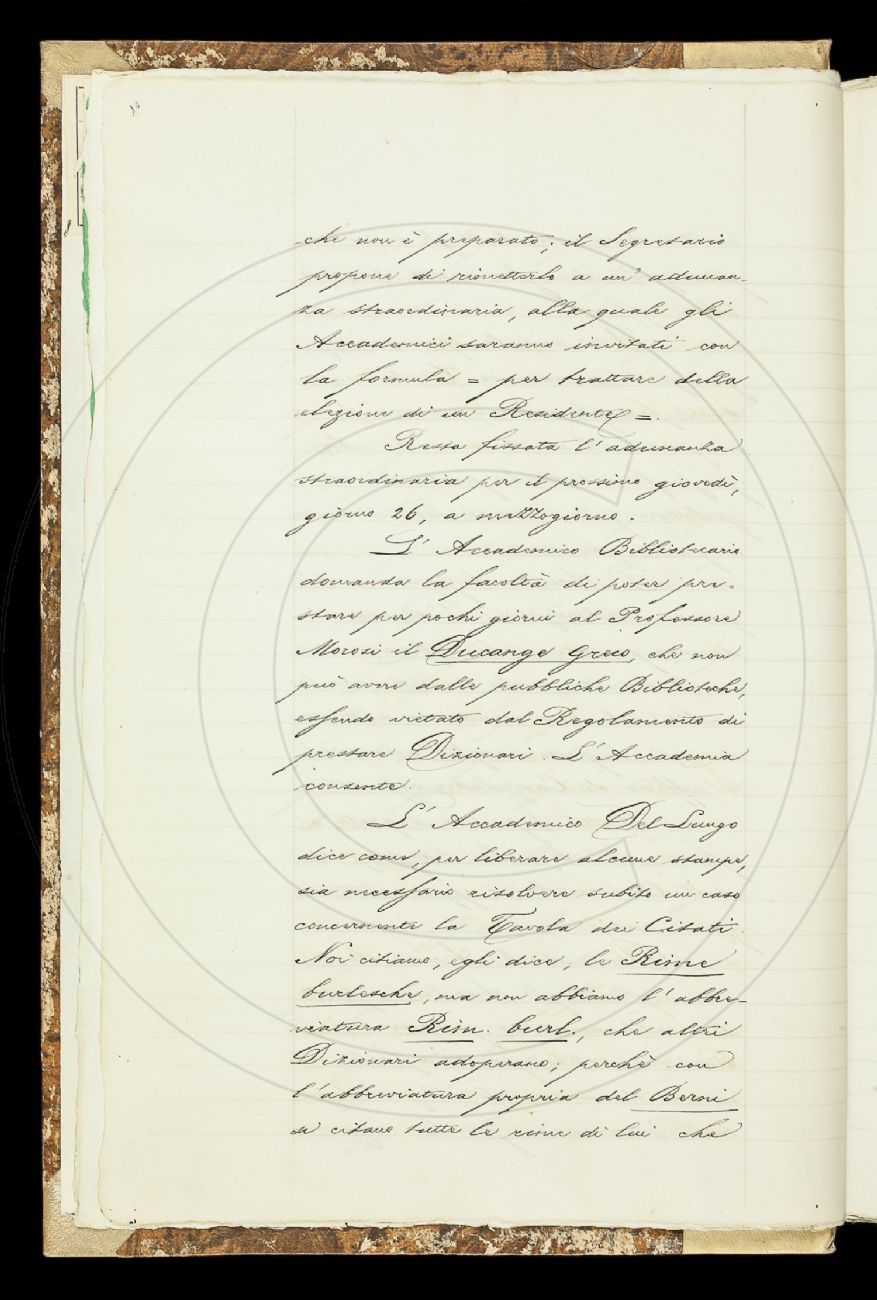 che non è preparato; il Segretario
propone di rimetterlo a un' adunan-
za straordinaria, alla quale gli
Accademici saranno invitati con
la formula = per trattare della
elezione di un Residente =.
Resta fissata l'adunanza
straordinaria per il prossimo giovedì,
giorno 26, a mezzogiorno.
L'Accademico Bibliotecario
domanda la facoltà di poter pre-
stare per pochi giorni al Professore
Morosi il Ducange Greco, che non
può avere dalle pubbliche Biblioteche,
essendo vietato dal Regolamento di
prestare Dizionari. L'Accademia
consente.
L'Accademico Del Lungo
dice come, per liberare alcune stampe,
sia necessario risolvere subito un caso
concernente la Tavola dei Citati.
Noi citiamo, egli dice, le Rime
burlesche, ma non abbiamo l'abbre-
viatura Rim. burl., che altri
Dizionari adoperano; perchè con
l'abbreviatura propria del Berni
si citano tutte le rime di lui che